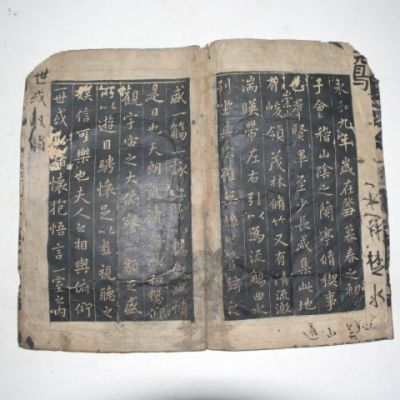 永和九年歲在癸丑暮春之初
于會稽山陰之蘭亭脩禊事
也群賢畢至少長咸集此地
有崇山峻領茂林脩竹又有清流激
湍暎帶左右引以為流觴曲水
列坐其次雖無絲竹管弦之
盛一觴一詠亦足以暢敘幽情
是日也天朗氣清惠風和暢仰
觀宇宙之大俯察品類之盛
所以遊目騁懷足以極視聽之
娛信可樂也夫人之相與俯仰
一世或取諸懷抱悟言一室之內
世或取諸